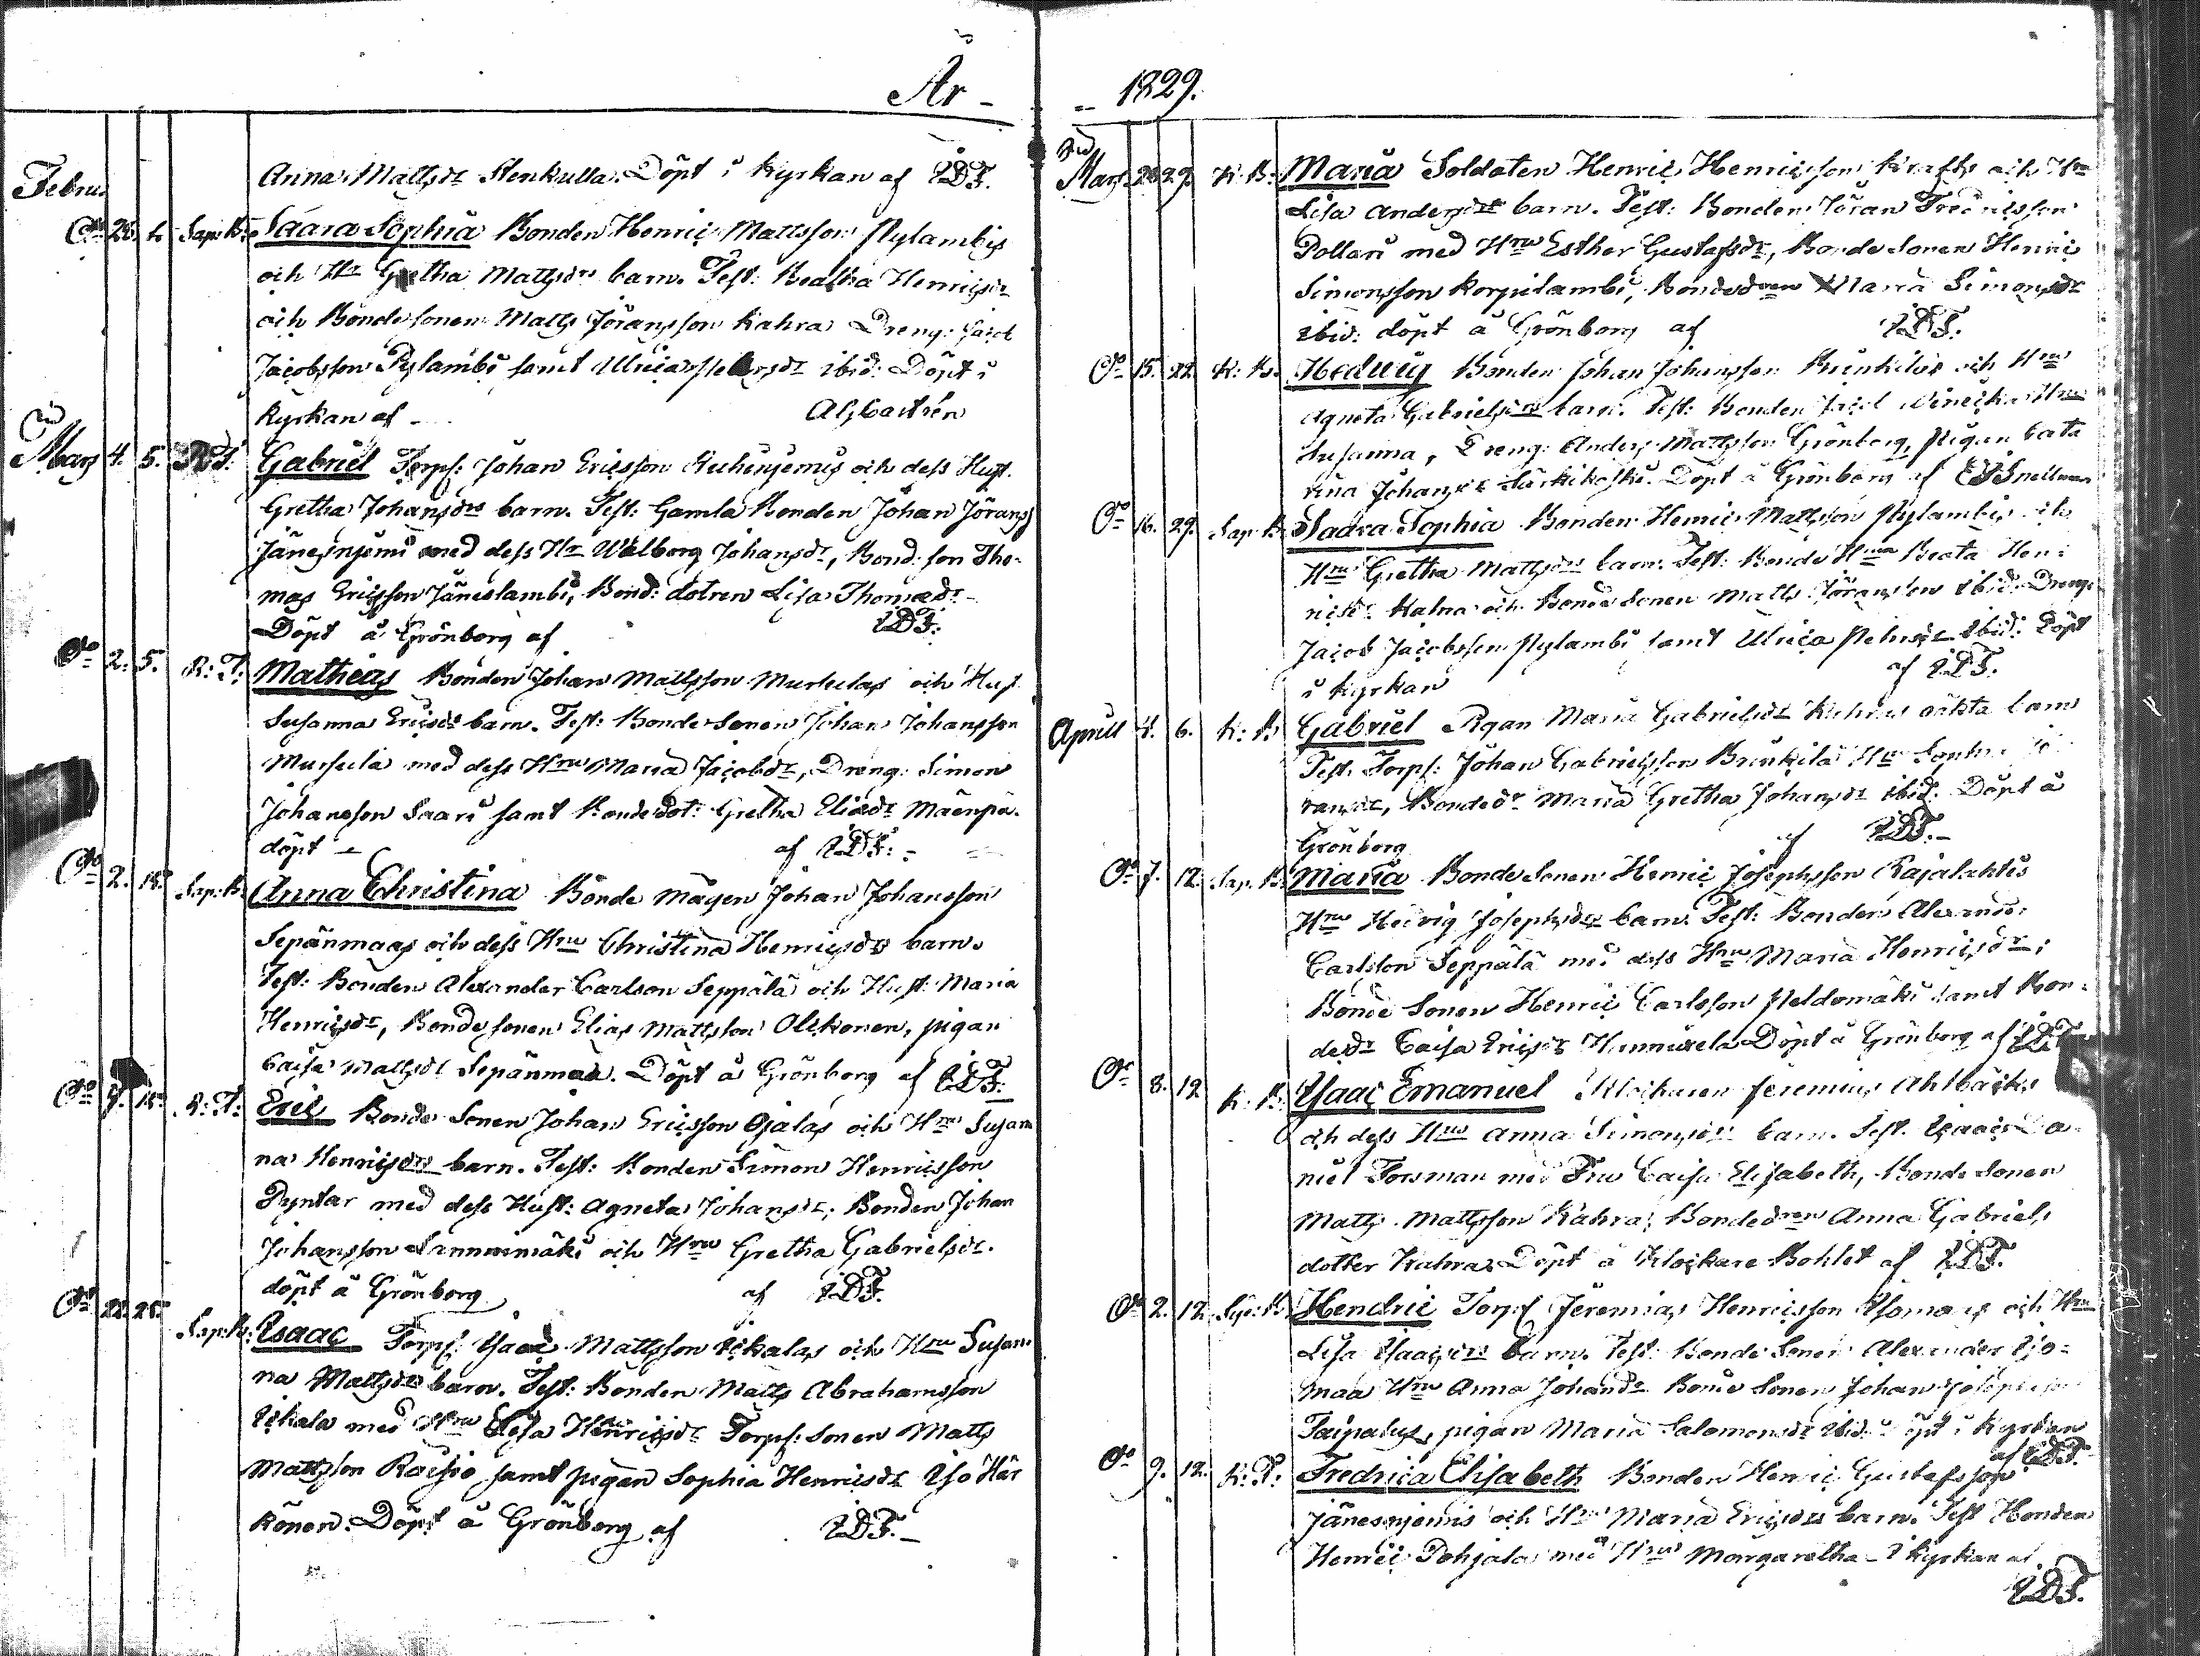 År - - 1829.
Febru Anna Mattsdr Stenkulla. Döpt i Kyrkan af IDF.
do 26. Sap: B: Saara Sophia Bonden Henric Mattsson Nylambis
och Hu Gretha Mattsdrs barn. Test: Beatha Henricsdr
och Bondesonen Matts Jöransson Kahra Dreng: Jacob
Jacobsson Nylambi samt Ulrica Petersdr ibid: Döpt i
Kyrkan af - - Castrén
Mars 4. 5. Gabriel Torp: Johan Ericsson dess Hust.
Gretha Johansdrs barn. Test: Gamla Bonden Johan Jörans
Jänesnjemi med dess Hu Walborg Johansdr, Bond: son Tho-
mas Ericsson Jäneslambi, Bond: dotren Lisa Thomædr -
Döpt å Grönborg af IDF:
do 2. 5. R: T: Mathias Bonden Johan Mattsson och Hust
Susanna Ericsdrs barn. Test: Bondesonen Johan Johansson
med dess Hru Maria Jacobsdr, Dreng: Simon
Johansson Saari samt Bondedot: Gretha Eliædr Mäenpä.
döpt - af IDF: -
do 2. 15. Sap: B: Anna Christina Bonde mågen Johan Johansson
Sepänmaas och dess Hru Christina Henricsdrs barn.
Test: Bonden Alexander Carlson Seppälä och Hust: Maria
Henricsdr, Bondesonen Elias Mattsson Olkkonen, pigan
Caisa Mattsdr Sepänmaa. Döpt å Grönborg af IDF:
do 15. R: T: Eric Bonde Sonen Johan Ericsson Ojalas och Hru Susan
na Henricsdrs barn. Test: Bonden Simon Henricsson
Pyntar med dess Hust: Agneta Johansdr; Bonden Johan
Johansson Lanninmäki och Hru Gretha Gabrielsdr.
döpt å Grönborg af IDF.
do 22. 25. Sap: B: Isaac Torp: Isaac Mattsson Ukalas och Hru Susan
na Mattsdrs barn. Test: Bonden Matts Abrahamsson
med Hru Lisa Henricsdr Torp: Sonen Matts
Mattsson Raisio samt pigan Sophia Henricsdr Iso Här
könen. Döpt å Grönborg af IDF. -
Mars 29. K: B: Maria Soldaten Henric Henricsson Krafts och Hru
Lisa Andersdrs barn. Test: Bonden Jöran Fredricsson
Pollari med Hru Esther Gustafsdr, Bonde Sonen Henric
Simonsson Korpilambi, Bondedren Maria Simonsdr
ibid: döpt å Grönborg af IDF.
do 15. 22. K: B: Hedwig Bonden Johan Johansson Brinkiläs och Hru
Agneta Gabrielsdrs barn. Test: Bonden Hru
Susanna, Dreng: Anders Mattsson Grönborg, Pigan Cata
rina Johansdr Särkikoski. Döpt å Grönborg af Snellman
do 16. 29. Sap: B: Saara Sophia Bonden Henric Mattsson Nylambis och
Hru Gretha Mattsdrs barn. Test: Bonde Hru Beata Hen-
ricsdr Kahra och Bonde Sonen Matts Jöransson ibid: Dreng:
Jacob Jacobsson Nylambi samt Ulrica Petersdr ibid: Döpt
i Kyrkan af IDF.
Aprill 4. 6. K: B: Gabriel Pigan Maria Gabrielsdr Kahras oäkta barn
Test: Torp: Johan Gabrielsson Brinkilä Hru
Bondedr Maria Gretha Johansdr ibid: Döpt å
Grönborg af IDF. -
do 7. 12. Sap. B: Maria Bonde Sonen Henric Josephsson Rajalahtis
Hru Hedvig Josephsdrs barn. Test: Bonden Alexander
Carlsson Seppälä med dess Hru Maria Henricsdr;
Bonde Sonen Henric Carlsson Peldomäki samt Bon-
dedr Caisa Ericsdr Döpt å Grönborg af IDF
do 8. 12 K: B: Isaac Emanuel Klockaren Jeremias Ahlbäcks
och dess Hru Anna Simonsdrs barn. Test. Da-
niel Forsman med Fru Caisa Elisabeth, Bonde Sonen
Matts Mattsson Kahra; Bondedren Anna Gabriels
dotter Kahra. Döpt å Klockare Bohlet af IDF.
do 2. 12. Hendric Torp: Jeremias Henricsson och Hru
Lisa Isaacsdrs barn. Test: Bonde Sonen Alexander Iso-
maa Hru Anna Johansdr Bonde Sonen Johan Josephsson
Taipalus, pigan Maria Salomonsdr ibid: Döpt i Kyrkan
af IDF.
do 9. 12. R: T: Fredrica Elisabeth Bonden Henric Gustafsson
Jänesnjemis och Hru Maria Ericsdrs barn. Test Bonden
Henric Pohjala med Hru Margaretha - i kyrkan af
IDF.